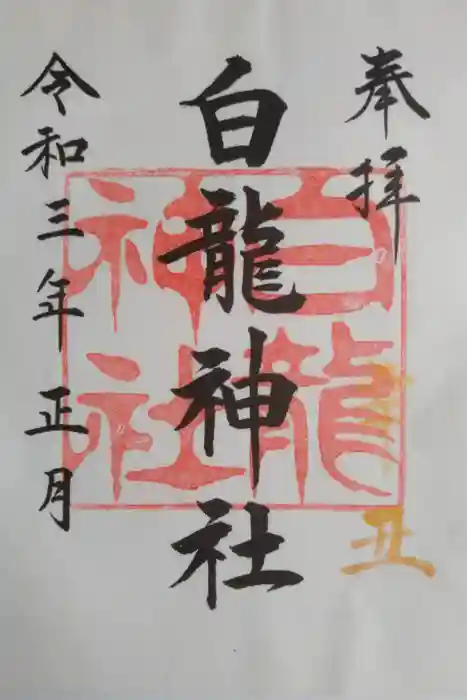 奉拝
丑
白龍神社
白龍神社
令和三年正月